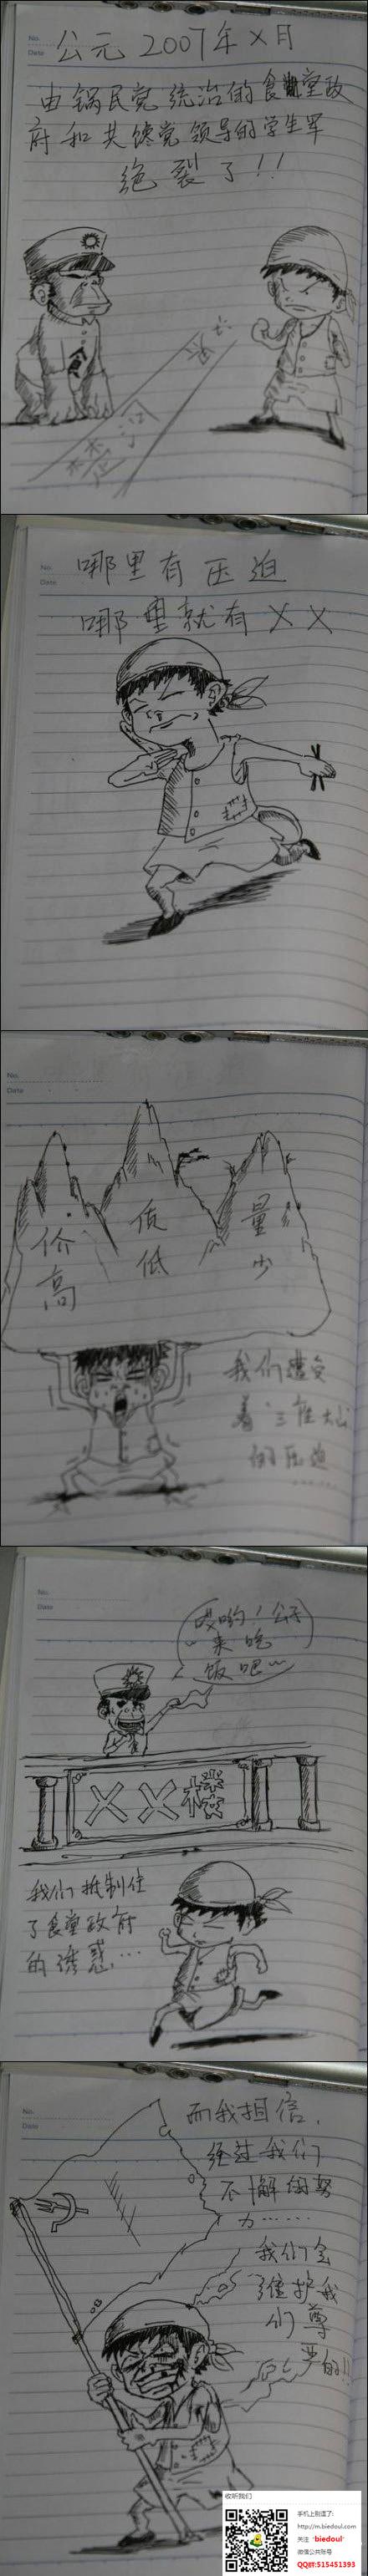 No.
Date
公元 2007年 X月
由锅民党统治的食堂政
府和共馋党领导的学生军
绝裂了!!
食
楚河
汉
No.
Date
哪里有压迫
哪里就有 X X
No.
Date
价高
质低
量少
我们遭受
着"三座大山"
的压迫
......
No.
Date
哎哟!公子
来吃
饭吧~
X X 楼
我们抵制住
了食堂政府
的诱惑...
No.
Date
而我相信,
经过我们
不懈的努
力......
我们会
维护我
们尊
严的!!
收听我们
手机上别逗了:
http://m.biedoul.com
关注 "biedoul"
微信公共账号
QQ群:515451393